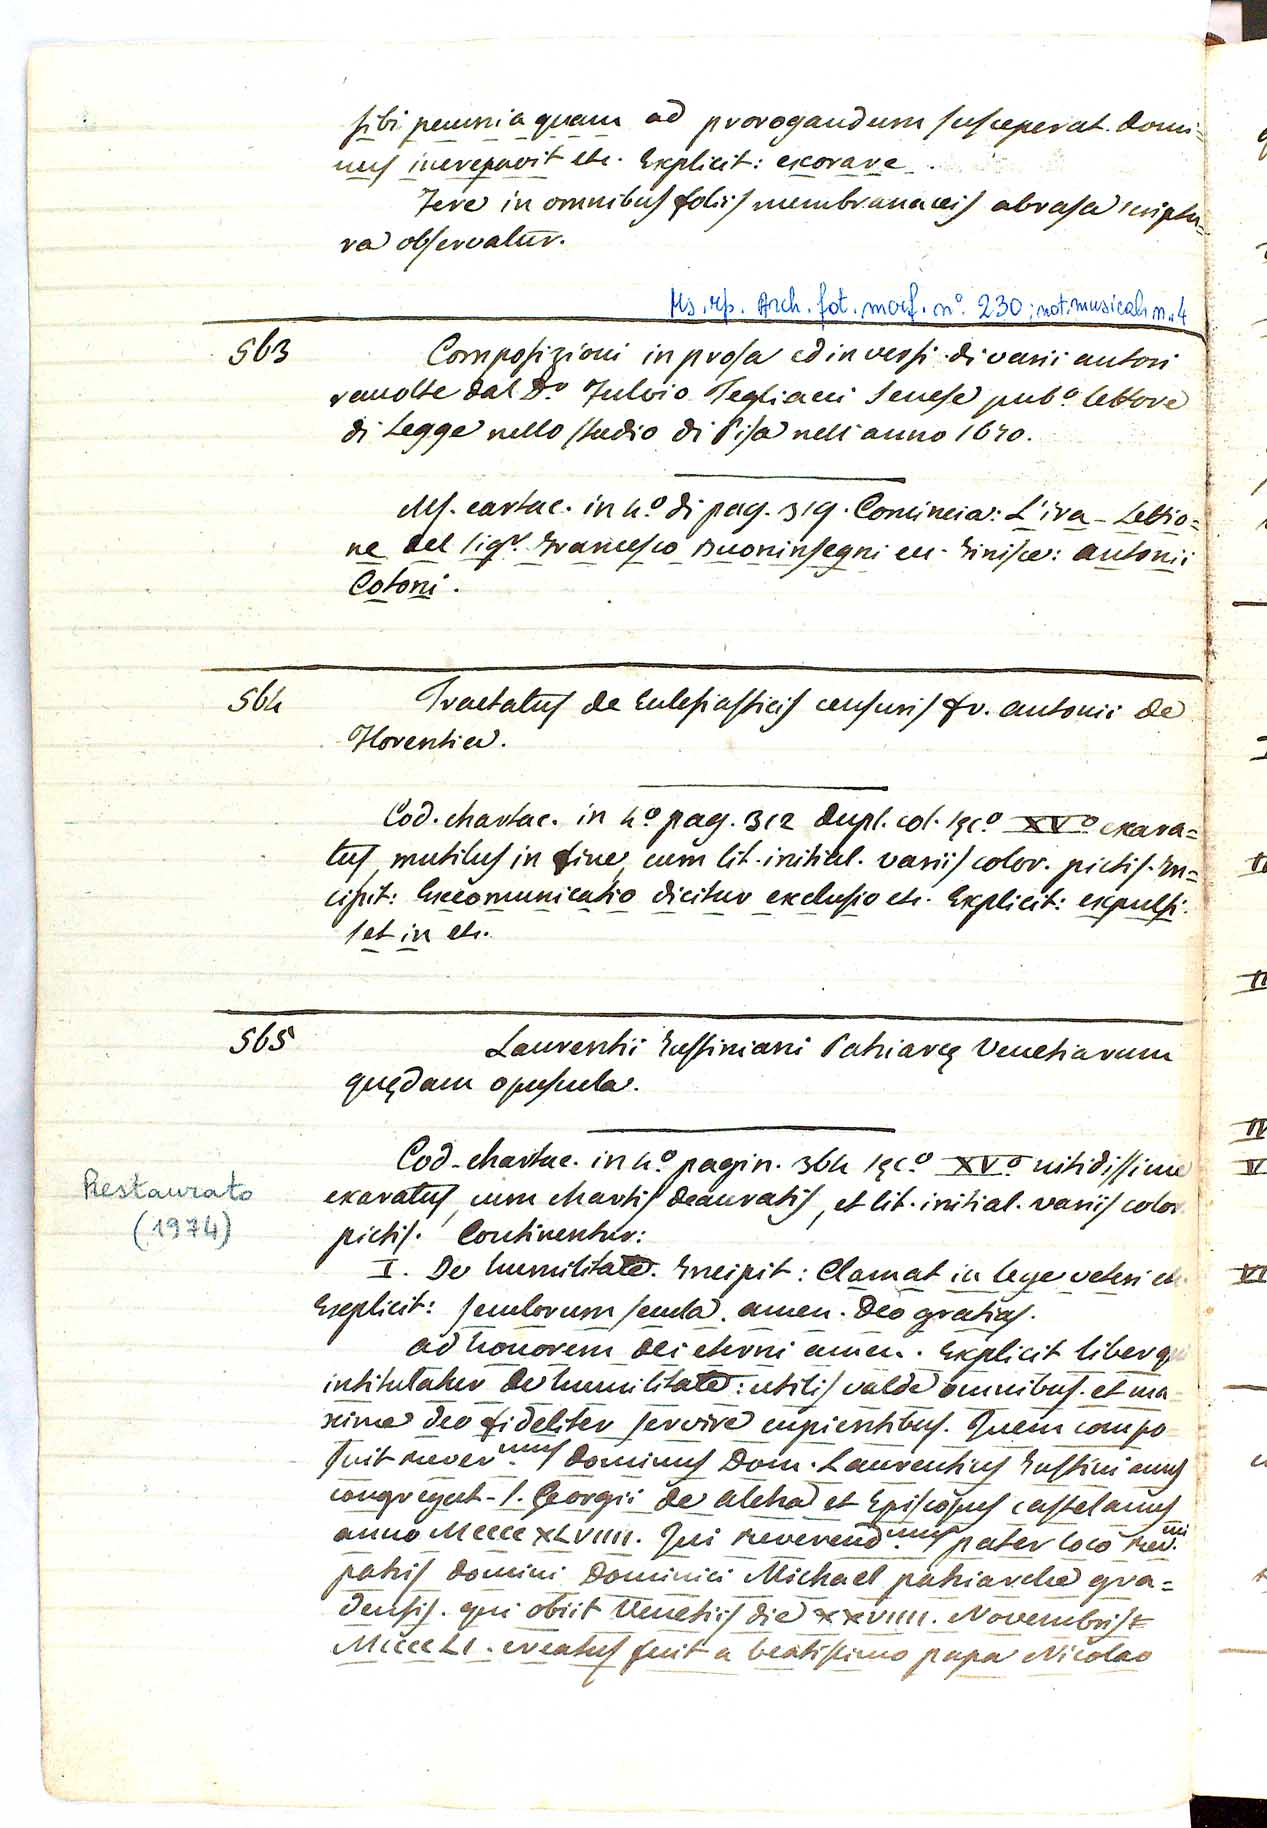 sibi pecunia quam ad prorogandum susceperat. Domi=
nus increpavit etc. Explicit: exorare.
Fere in omnibus foliis membranaceis abrasa scriptu=
ra observatur.
Ms. rip. Arch. fot. morf. n° 230; not. musicali n. 4
563 Composizioni in prosa ed in versi di varii autori
raccolte dal D.º Fulvio Tegliacci Senese pub.º lettore
di Legge nello studio di Pisa nell'anno 1640.
Ms. cartac. in 4.º di pag. 319. Comincia: L'ira - Lettio=
ne del Sig.r Francesco Buoninsegni ec. Finisce: Antonii
Cotoni.
564 Tractatus de Eclesiasticis censuris fr. Antonii de
Florentia.
Cod. chartac. in 4.º pag. 312 dupl. col. sęc.º XVº exara=
tus, mutilus in fine, cum lit. initial. variis color. pictis. In=
cipit: Excomunicatio dicitur exclusio etc. Explicit: expulsi
set in etc.
565 Laurentii Iustiniani Patriarcę Venetiarum
quędam opuscula.
Cod. chartac. in 4.º pagin. 364 sęc.º XVº nitidissime
Restaurato
(1974)
exaratus, cum chartis deauratis, et lit. initial. variis color.
pictis. Continentur:
I. De humilitate. Incipit: Clamat in lege veteri etc.
Explicit: seculorum secula. amen. Deo gratias.
Ad honorem dei eterni amen. Explicit liber qui
intitulatur de humilitate: utilis valde omnibus. et ma=
xime deo fideliter servire cupientibus. Quem compo=
suit rever.mus dominus Dom. Laurentius Iustinianus
congregat. S. Georgii de alcha et Episcopus castelanus
anno MCCCCXLVIIII. Qui reverend.mus pater loco rev.mi
patris domini Dominici Michael patriarche gra=
densis. qui obiit Venetiis die XXVIIII. Novembris
MCCCCLI. creatus fuit a beatissimo papa Nicolao